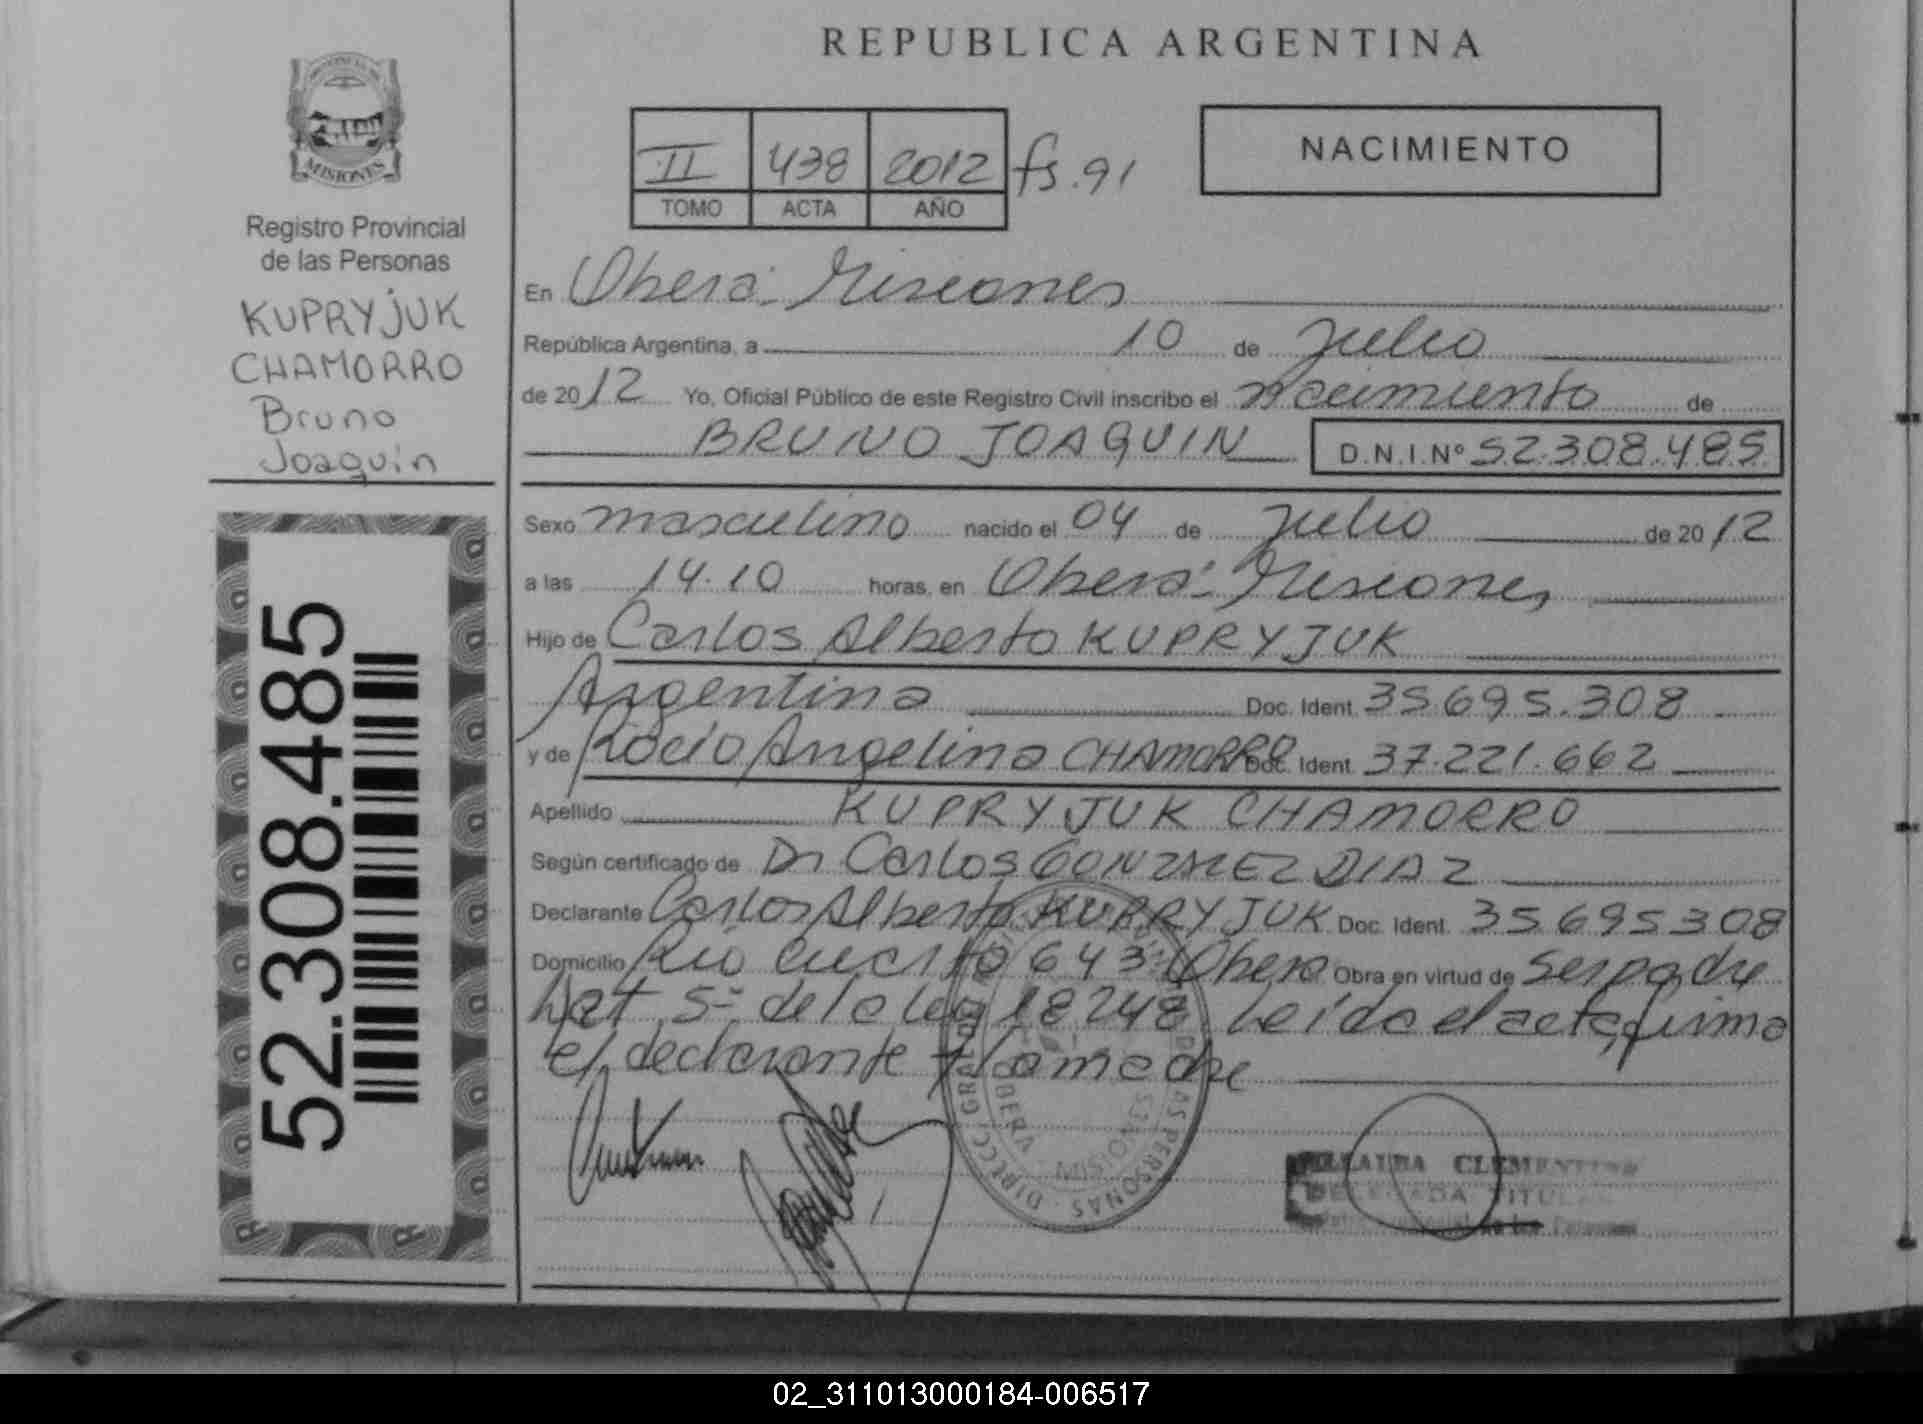 REPUBLICA ARGENTINA
PROVINCIA DE
MISIONES
Registro Provincial
de las Personas
KUPRYJUK
CHAMORRO
Bruno
Joaquín
52.308.485
II 438 2012 fs. 91
TOMO ACTA AÑO
NACIMIENTO
En Oberá - Misiones
República Argentina, a 10 de Julio
de 2012 Yo, Oficial Público de este Registro Civil inscribo el nacimiento de
BRUNO JOAQUIN D.N.I.Nº 52.308.485
Sexo masculino nacido el 04 de Julio de 2012
a las 14.10 horas, en Oberá - Misiones
Hijo de Carlos Alberto KUPRYJUK
Argentina Doc. Ident. 35.695.308
y de Rocío Angelina CHAMORRO Doc. Ident. 37.221.662
Apellido KUPRYJUK CHAMORRO
Según certificado de Dr Carlos GONZALEZ DIAZ
Declarante Carlos Alberto KUPRYJUK Doc. Ident. 35695308
Domicilio Río Cuarto 643 - Oberá Obra en virtud de Ser padre
Nat. 5º de la ley 18248 Leída el acta, firma
el declarante y la madre
OBERA
MISIONES
AS PERSONAS
CLEMENTINA
DELEGADA TITULAR
02_311013000184-006517